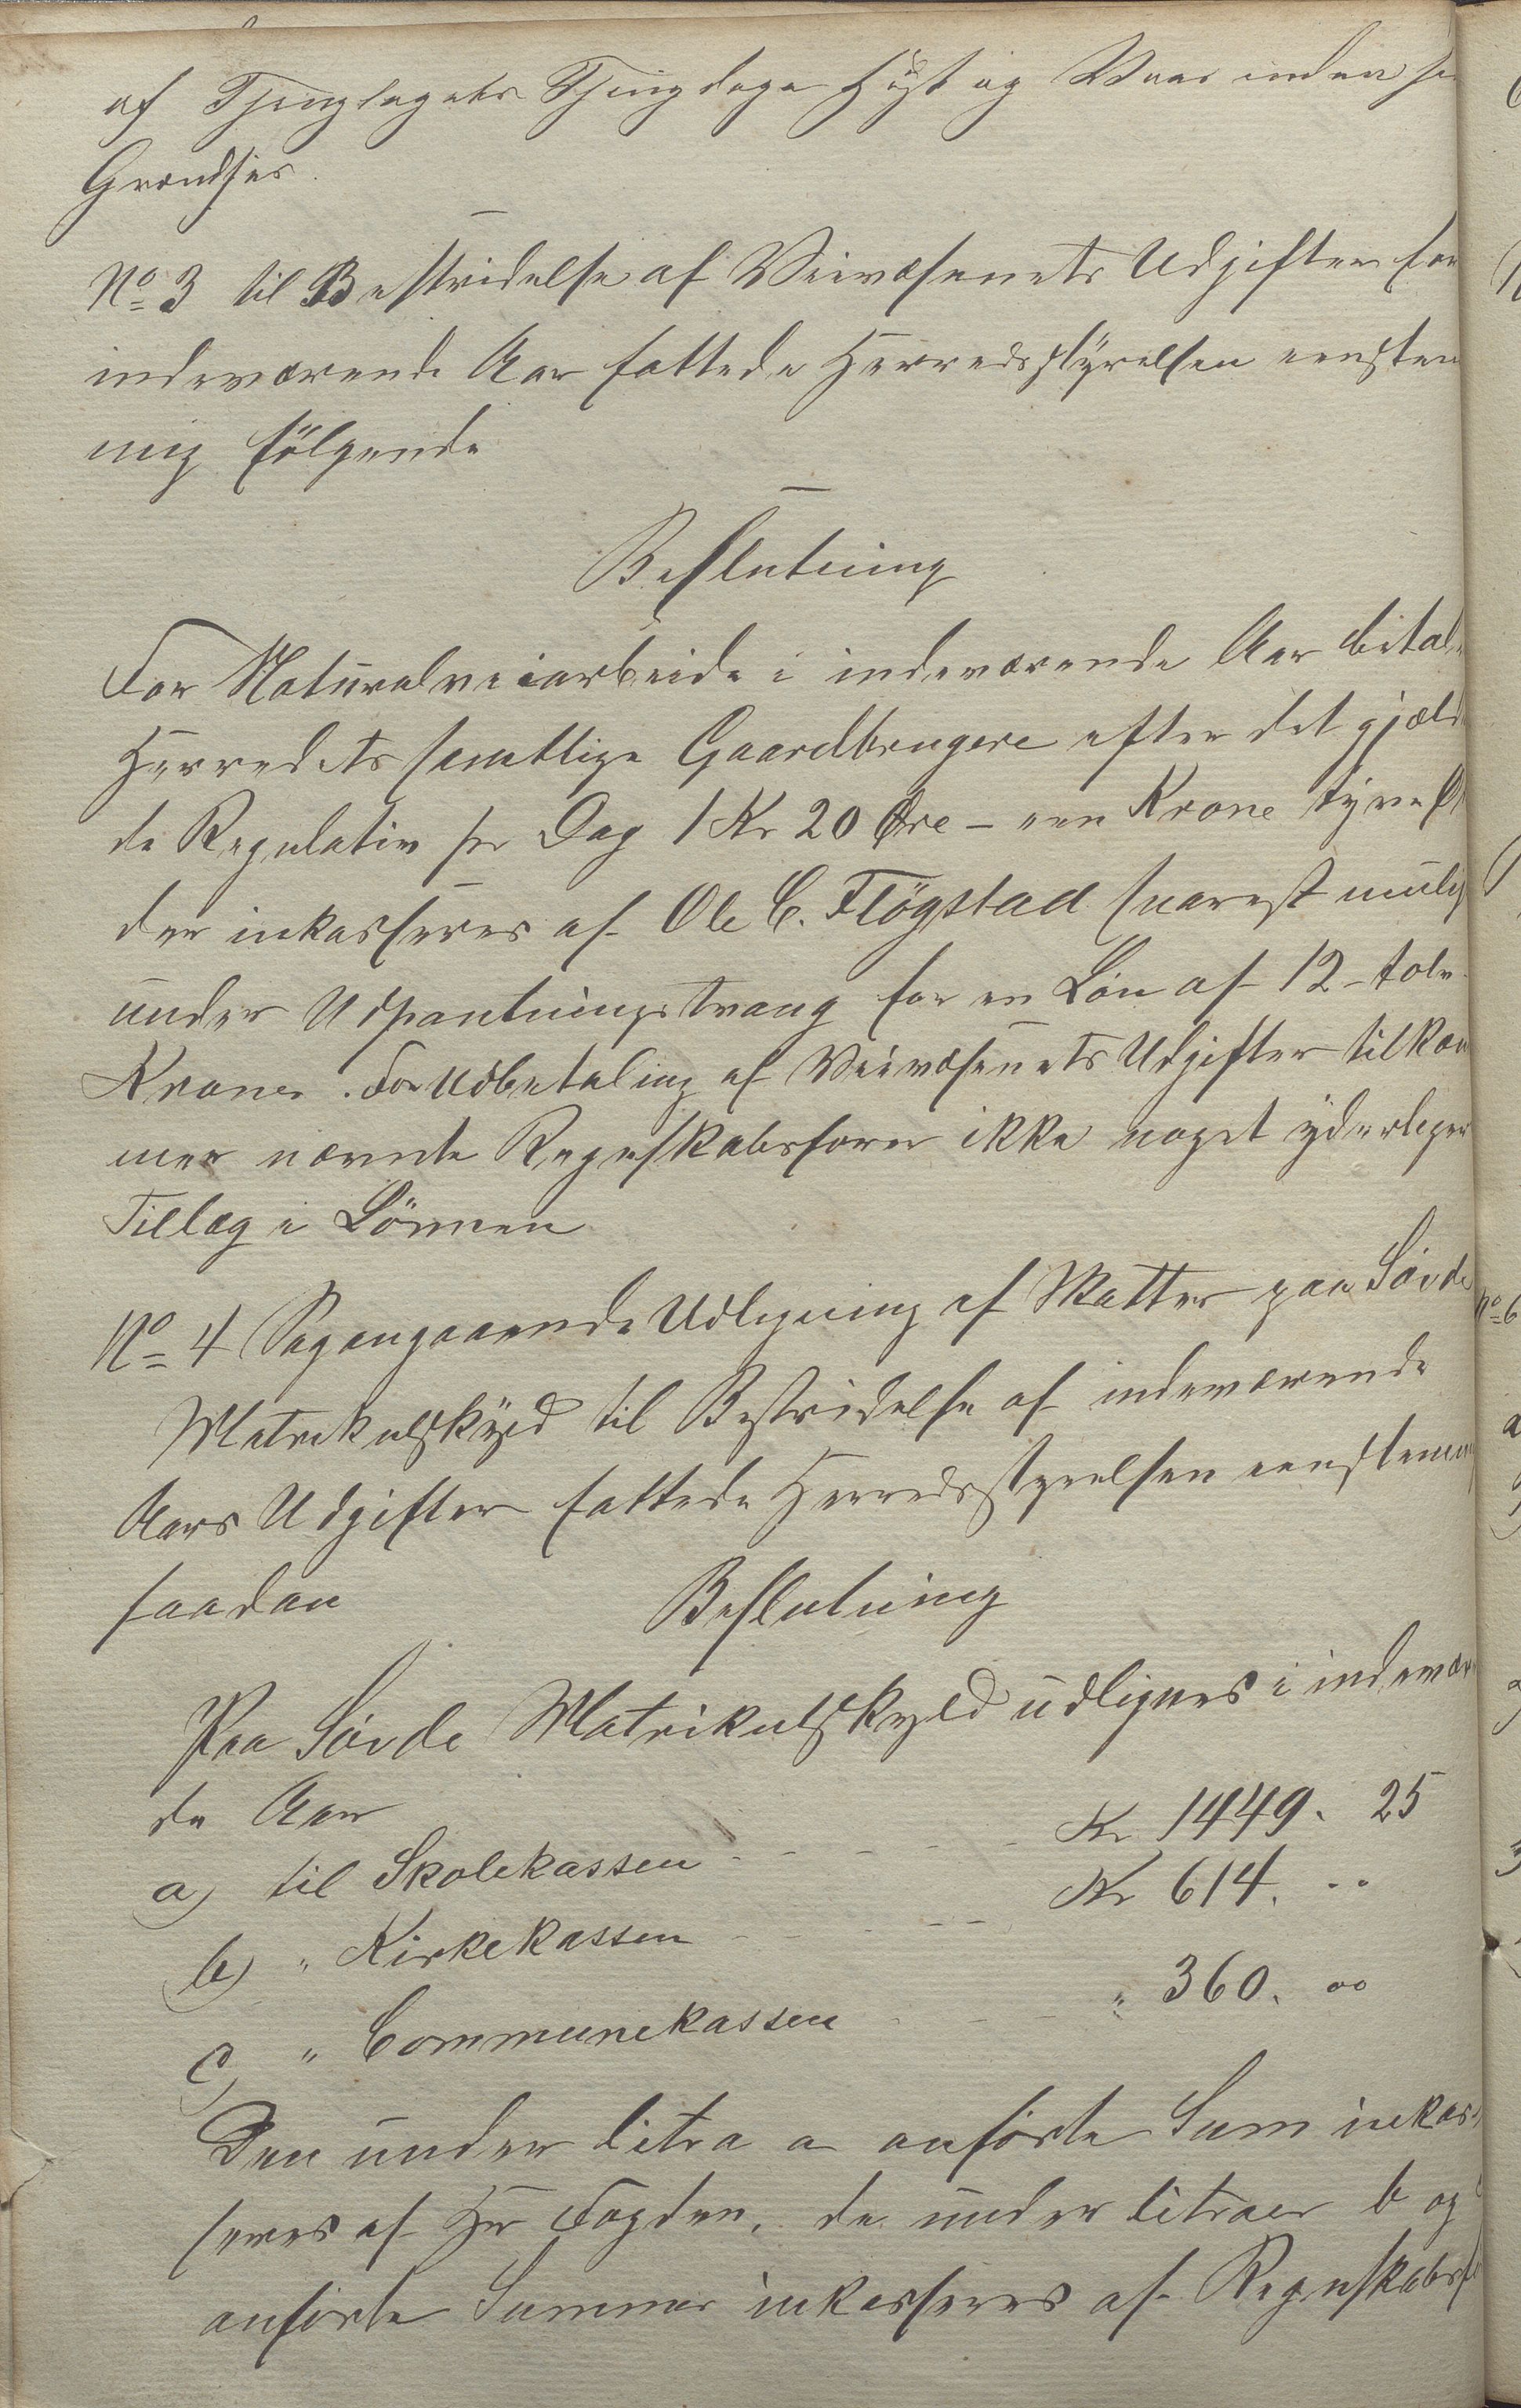 af Thinglagets Thingdage Høst og Vaar inden se
Grændser.
No 3 til Bestridelse af Veivæsenets Udgifter for
indeværende Aar fattede Herredsstyrelsen eenstem
mig følgende
Beslutning
For Naturalveiarbeide i indeværende Aar betale
Herredets samtlige Gaardbrugere efter det gjæld
de Regulativ pr Dag 1 Kr 20 Øre - een Krone tyve Ø
der inkasseres af Ole C. Fløgstad snarest mulig
under Udpantningstvang for en Løn af 12 - tolv
Kroner. For Udbetaling af Veivæsenets Udgifter tilkom
mer nævnte Regnskabsfører ikke noget yderligere
Tillæg i Lønnen
No 4 Sag angaaende Udligning af Skatter paa Søvde
Matrikulskyld til Bestridelse af indeværende
Aars Udgifter fattede Herredsstyrelsen eenstemmig
saadan Beslutning
Paa Søvde Matrikulskyld udlignes i indevær
de Aar
a) til Skolekassen - - - - Kr 1449. 25
b) " Kirkekassen - - - - Kr 614. "
c) " Communekassen - - - " 360. 00
Den under litra a anførte Sum inkas
seres af Hr Fogden, de under litraer b og c
anførte Summer inkasseres af Regnskabsf
No 6